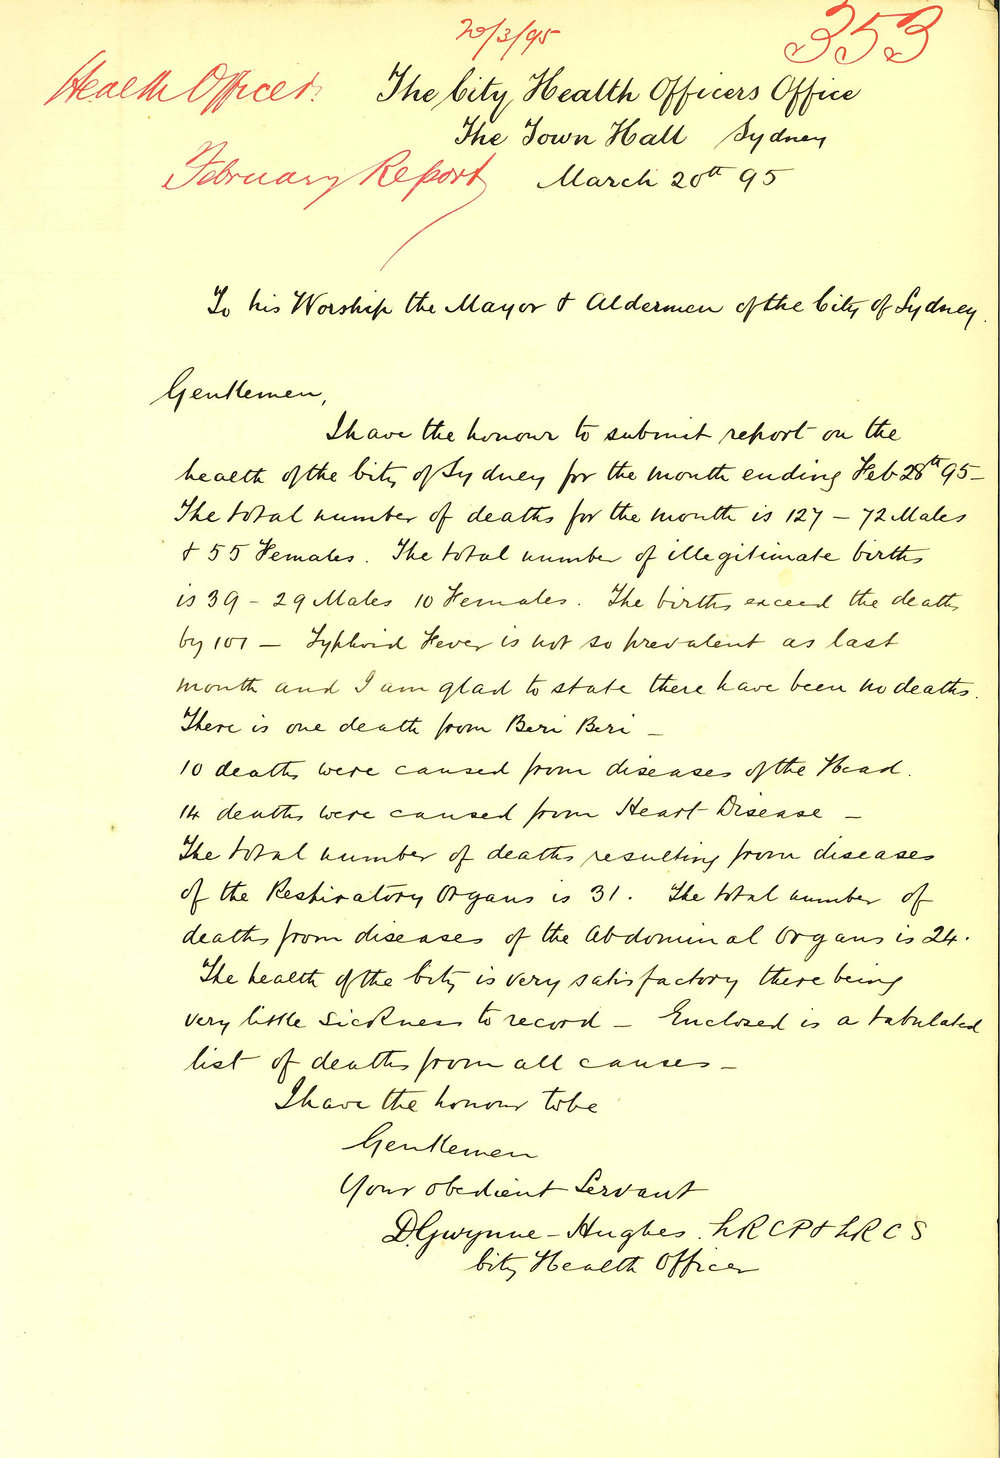 20/3/95
353
Health Officer.
The City Health Officers Office
The Town Hall Sydney
February Report
March 20th 95
To his Worship the Mayor & Aldermen of the City of Sydney.
Gentlemen,
I have the honour to submit report on the
health of the City of Sydney for the month ending Feb 28th 95 -
The total number of deaths for the month is 127 - 72 Males
& 55 Females. The total number of illegitimate births
is 39 - 29 Males 10 Females. The births exceed the deaths
by 101 - Typhoid Fever is not so prevalent as last
month and I am glad to state there have been no deaths.
There is one death from Beri Beri -
10 deaths were caused from diseases of the Head.
14 deaths were caused from Heart Disease -
The total number of deaths resulting from diseases
of the Respiratory Organs is 31. The total number of
deaths from diseases of the Abdominal Organs is 24.
The health of the City is very satisfactory there being
very little sickness to record - Enclosed is a tabulated
list of deaths from all causes -
I have the honour to be
Gentlemen
Your obedient Servant
D. Gwynne-Hughes. LRCP & LRCS
City Health Officer